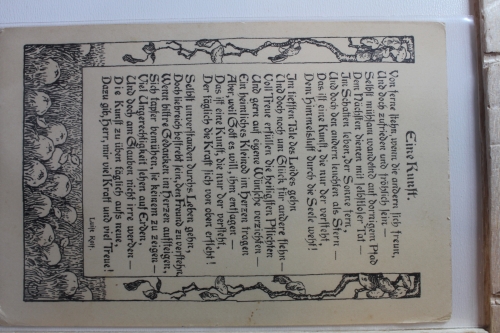 Eine Kunst.
Von ferne stehn, wenn die andern sich freun,
Und doch zufrieden und fröhlich sein —
Selbst mühsam wandelnd auf dornigem Pfad
Dem Nächsten dienen mit selbstloser Tat —
Im Schatten leben, der Sonne fern,
Und doch den andern leuchten als Stern —
Das ist eine Kunst, die nur der versteht,
Dem Himmelsluft durch die Seele weht!
Im tiefsten Tale des Leides gehn
Und doch noch um Glück für andere flehn —
Voll Treue erfüllen die heiligsten Pflichten
Und gern auf eigne Wünsche verzichten —
Ein heimliches Kleinod im Herzen tragen
Aber, weil Gott es will, ihm entsagen —
Das ist eine Kunst, die nur der versteht,
Der täglich die Kraft sich von oben erfleht!
Selbst unverstanden durchs Leben gehn,
Doch liebreich bestrebt sein, den Freund zu verstehn,
Wenn bittre Gedanken im Herzen aufsteigen,
Sich tapfer bemühen, sie keinem zu zeigen —
Viel Ungerechtigkeit sehen auf Erden
Und doch am Glauben nicht irre werden —
Die Kunst zu üben täglich aufs neue,
Dazu gib, Herr, mir viel Kraft und viel Treue!